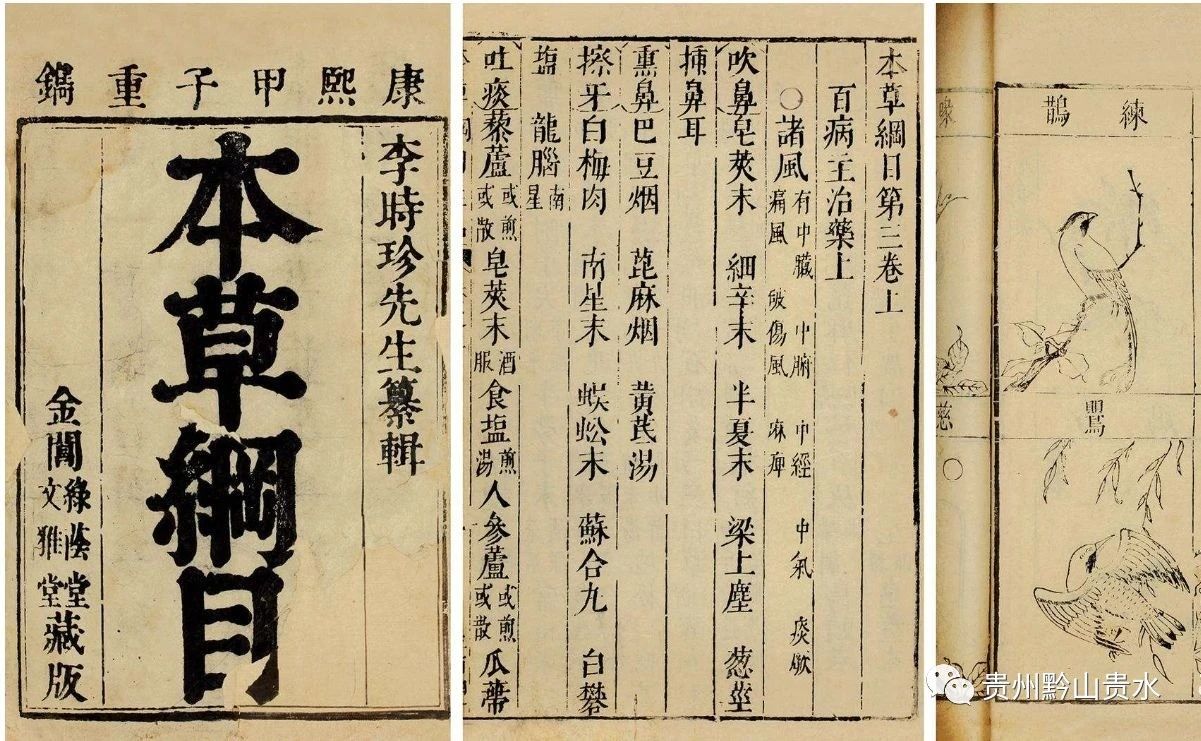 康熙甲子重鐫
李時珍先生纂輯
本草綱目
金閶綠蔭堂文雅堂藏版
本草綱目第三卷上
百病主治藥上
○諸風有中臟 中腑 中經 中氣 痰厥痛風 破傷風 麻痺
吹鼻皂莢末 細辛末 半夏末 梁上塵 葱莖
插鼻耳
熏鼻巴豆烟 蓖麻烟 黃芪湯
擦牙白梅肉 南星末 蜈蚣末 蘇合丸 白礬
塩 龍腦南星
吐痰藜蘆或煎或散皂莢末酒服食塩煎湯人參蘆或煎或散瓜蒂
練鵲
鸎
贵州黔山贵水